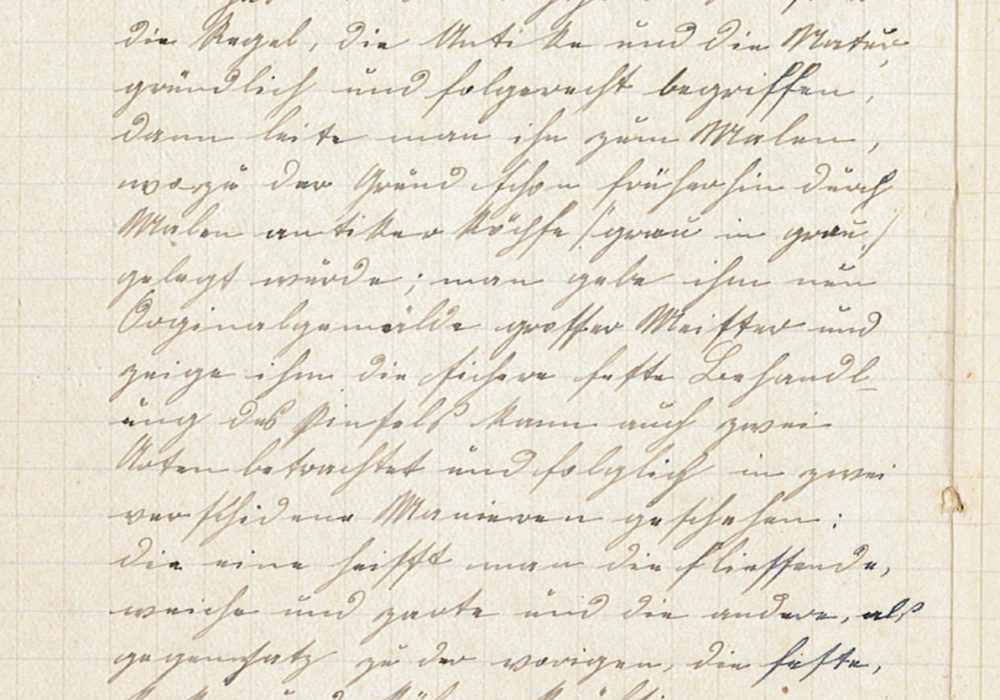 die Regel, die Antike und die Natur,
gründlich und folgerecht begriffen,
dann leite man ihn zum Malen,
wozu der Grund schon früherhin durch
Malen antiker Köpfe /: grau in grau :/
gelegt wurde; man gebe ihm nun
Orginalgemälde grosser Meister und
zeige ihm die sichere feste Behandl-
ung des Pinsels kann auch zwei
Arten betrachtet und folglich in zwei
verschidene Manieren geschehen:
die eine heisst man die fliessende,
weiche und zarte und die andere, als
gegensatz zu der vorigen, die feste,